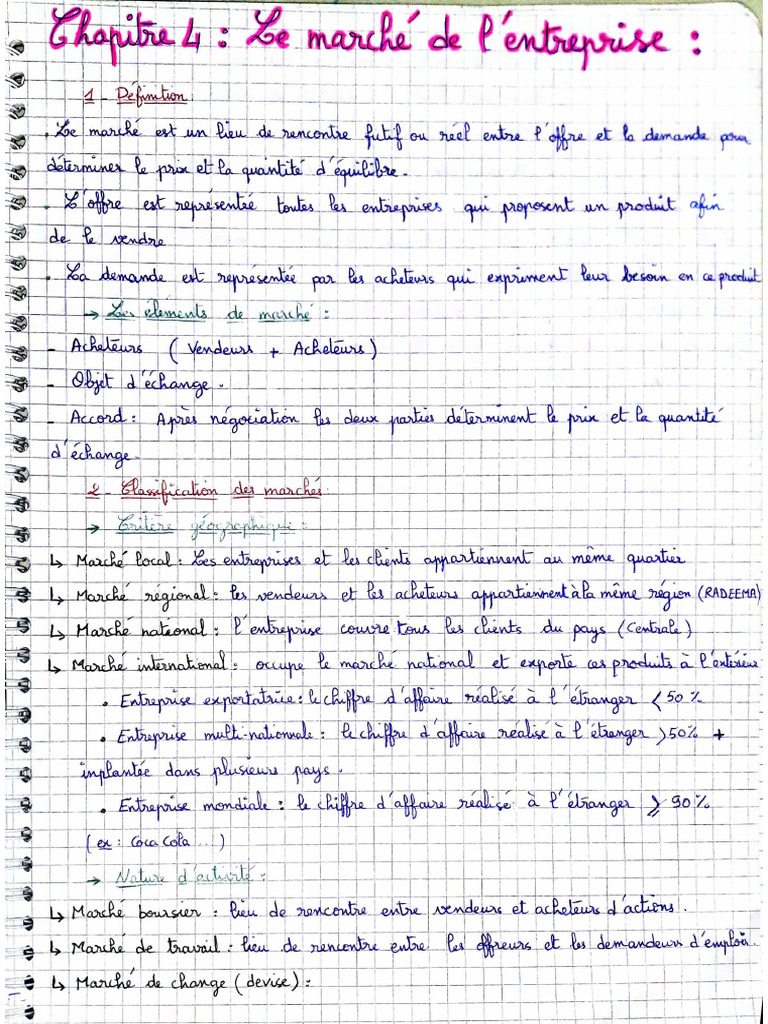 Chapitre 4 : Le marché de l'entreprise :
1 - Définition
. Le marché est un lieu de rencontre futif ou réel entre l'offre et la demande pour
déterminer le prix et la quantité d'équilibre.
. L'offre est représentée toutes les entreprises qui proposent un produit afin
de le vendre
. La demande est représentée par les acheteurs qui expriment leur besoin en ce produit
→ Les élements de marché :
- Acheteurs ( Vendeurs + Acheteurs )
- Objet d'échange .
- Accord : Après négociation les deux parties déterminent le prix et la quantité
d'échange .
2 - Classification des marchés
→ Critère géographique :
↳ Marché local : Les entreprises et les clients appartiennent au même quartier
↳ Marché régional : les vendeurs et les acheteurs appartiennent à la même région (RADEEMA)
↳ Marché national : l'entreprise couvre tous les clients du pays (Centrale)
↳ Marché international : occupe le marché national et exporte ces produits à l'extérieur
• Entreprise exportatrice : le chiffre d'affaire réalisé à l'étranger < 50 %
• Entreprise multi-nationnale : le chiffre d'affaire réalisé à l'étranger > 50% +
implantée dans plusieurs pays .
• Entreprise mondiale : le chiffre d'affaire réalisé à l'étranger ⩾ 90%
( ex : Coca Cola ... )
→ Nature d'activité :
↳ Marché boursier : lieu de rencontre entre vendeurs et acheteurs d'actions .
↳ Marché de travail : lieu de rencontre entre les offreurs et les demandeurs d'emplois .
↳ Marché de change ( devise ) :